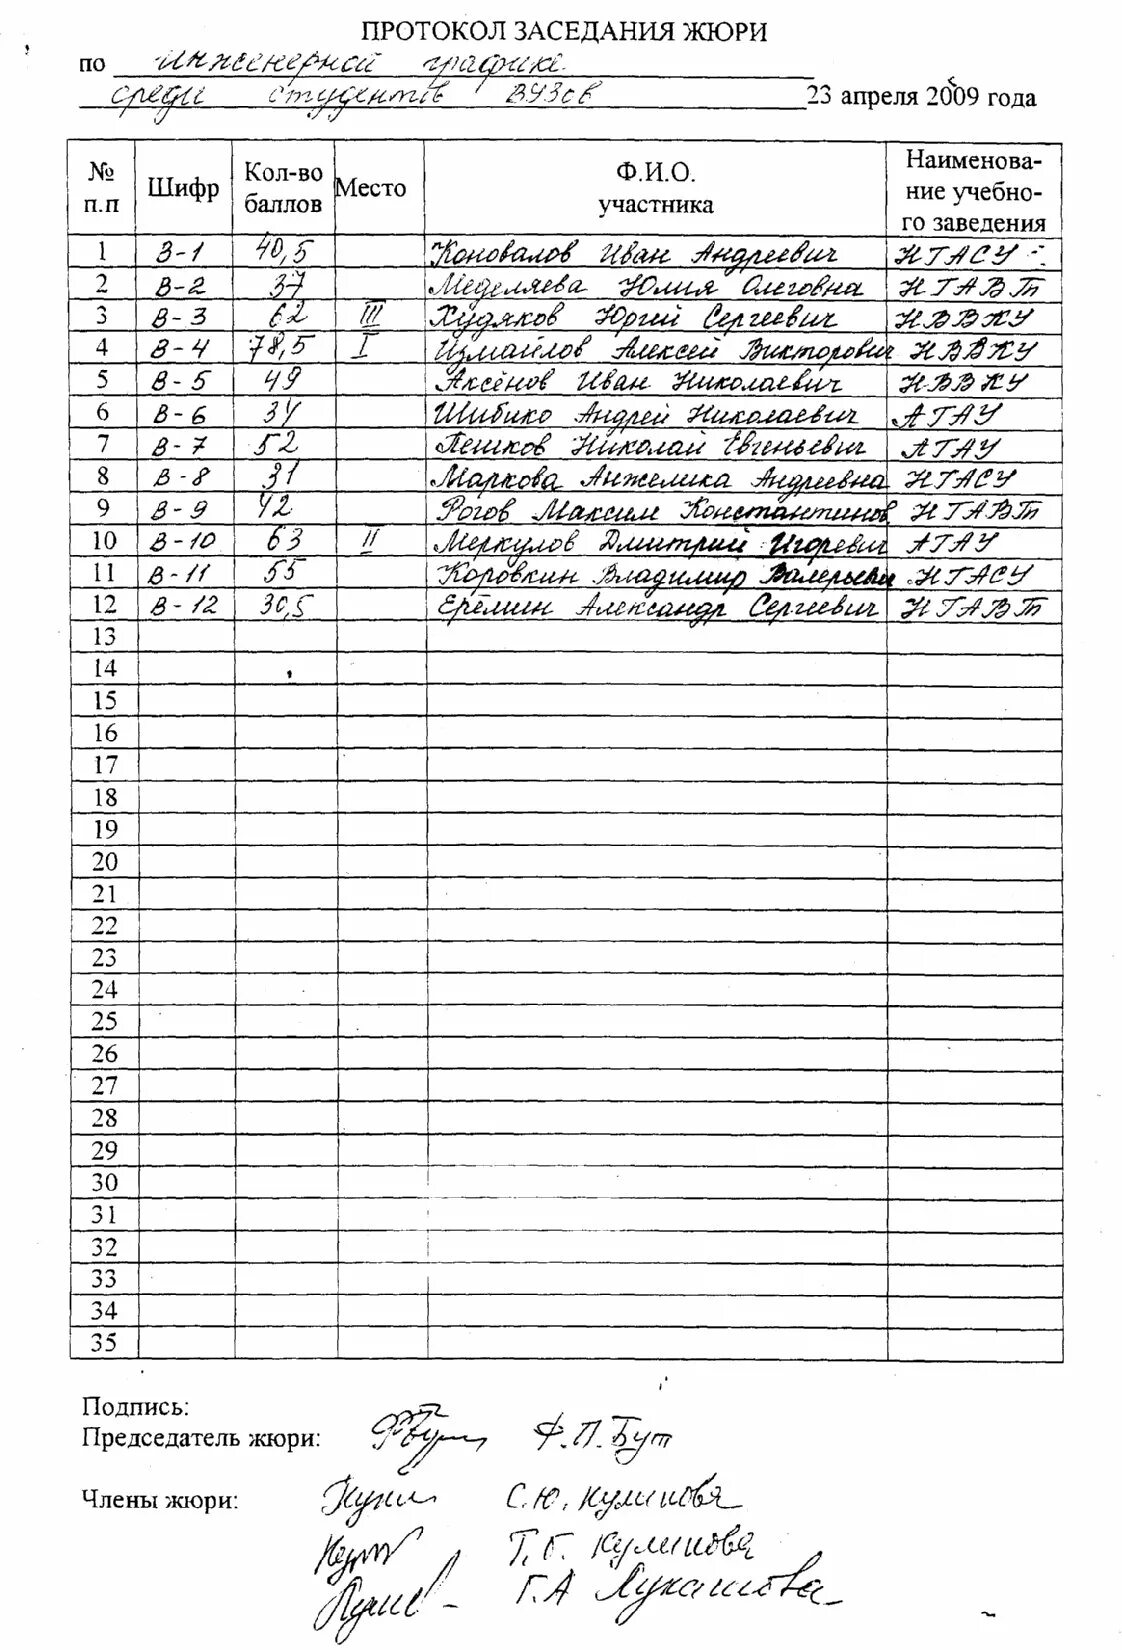 ПРОТОКОЛ ЗАСЕДАНИЯ ЖЮРИ
по инженерной графике
среди студентов ВУЗов 23 апреля 2009 года
№ п.п Шифр Кол-во баллов Место Ф.И.О. участника Наименова-ние учебно-го заведения
1 В-1 40,5 Коновалов Иван Андреевич НГАСУ
2 В-2 37 Меделяева Юлия Олеговна НГАВТ
3 В-3 62 III Худяков Юргий Сергеевич НВВКУ
4 В-4 78,5 I Измайлов Алексей Викторович НВВКУ
5 В-5 49 Аксёнов Иван Николаевич НВВКУ
6 В-6 34 Шибико Андрей Николаевич АГАУ
7 В-7 52 Пешков Николай Евгеньевич АГАУ
8 В-8 31 Маркова Анжелика Андреевна НГАСУ
9 В-9 42 Рогов Максим Константинов НГАВТ
10 В-10 63 II Меркулов Дмитрий Игоревич АГАУ
11 В-11 55 Коровкин Владимир НГАСУ
12 В-12 30,5 Ерёмин Александр Сергеевич НГАВТ
13
14
15
16
17
18
19
20
21
22
23
24
25
26
27
28
29
30
31
32
33
34
35
Подпись:
Председатель жюри: Ф.П. Бут
Члены жюри: С.Ю. Куликова
Т.Г. Куликова
Г.А Лукашова